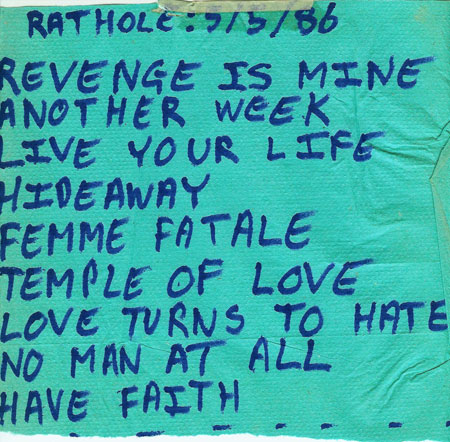 RATHOLE: 5/5/86
REVENGE IS MINE
ANOTHER WEEK
LIVE YOUR LIFE
HIDEAWAY
FEMME FATALE
TEMPLE OF LOVE
LOVE TURNS TO HATE
NO MAN AT ALL
HAVE FAITH